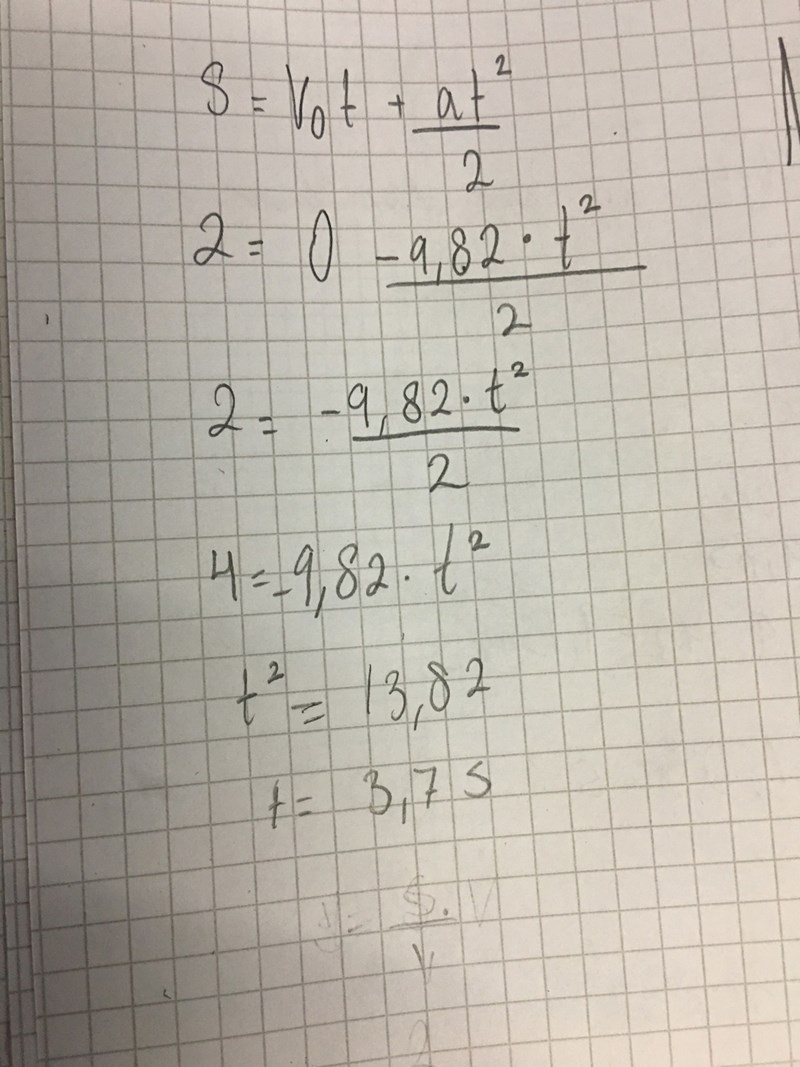 S = V₀t + at²/2
2 = 0 - 9,82 · t²/2
2 = -9,82 · t²/2
4 = -9,82 · t²
t² = 13,82
t = 3,7 s